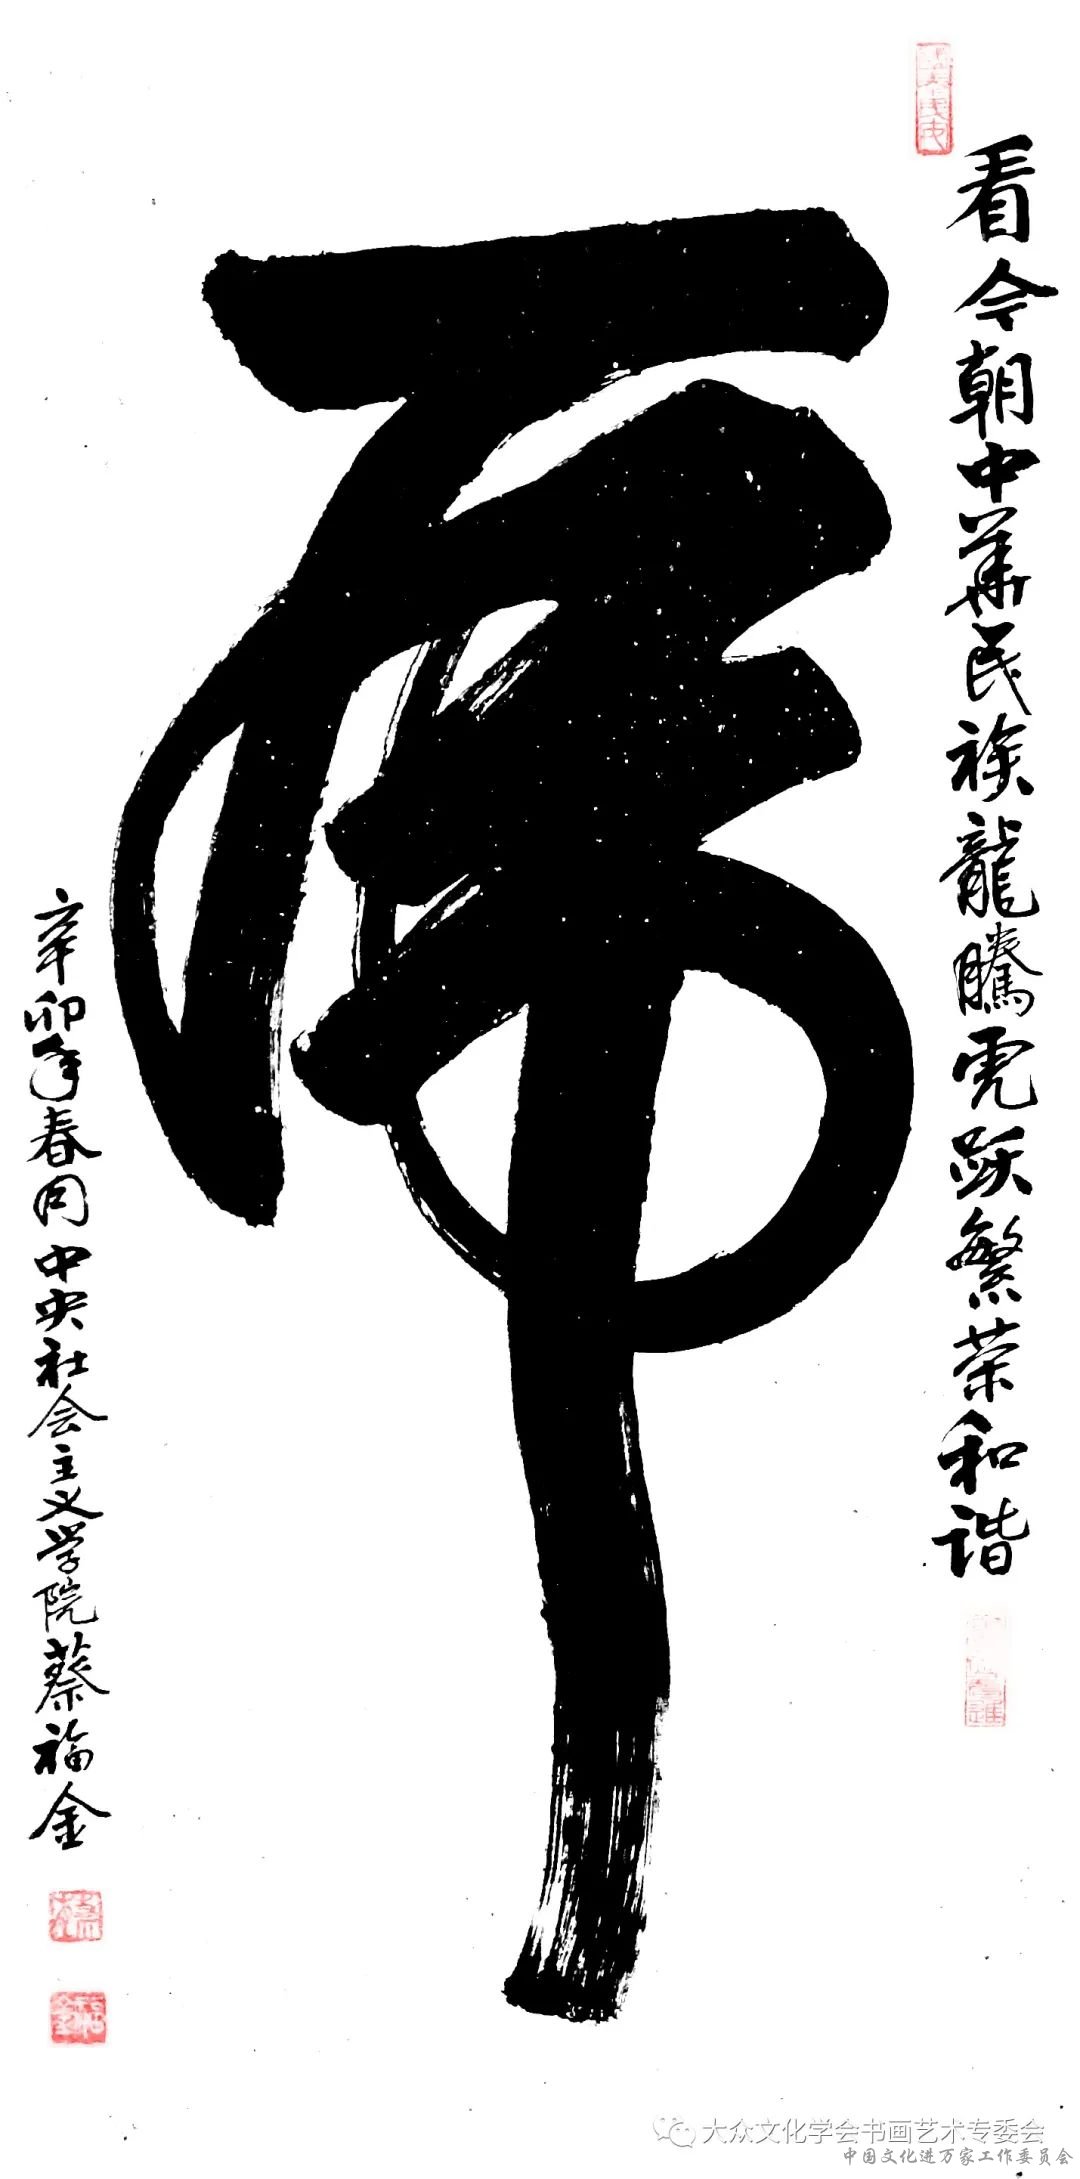 看今朝中華民族龍騰虎跃繁荣和谐
虎
辛卯年春中央社会主义学院蔡福金
大众文化学会书画艺术专委会
中国文化进万家工作委员会